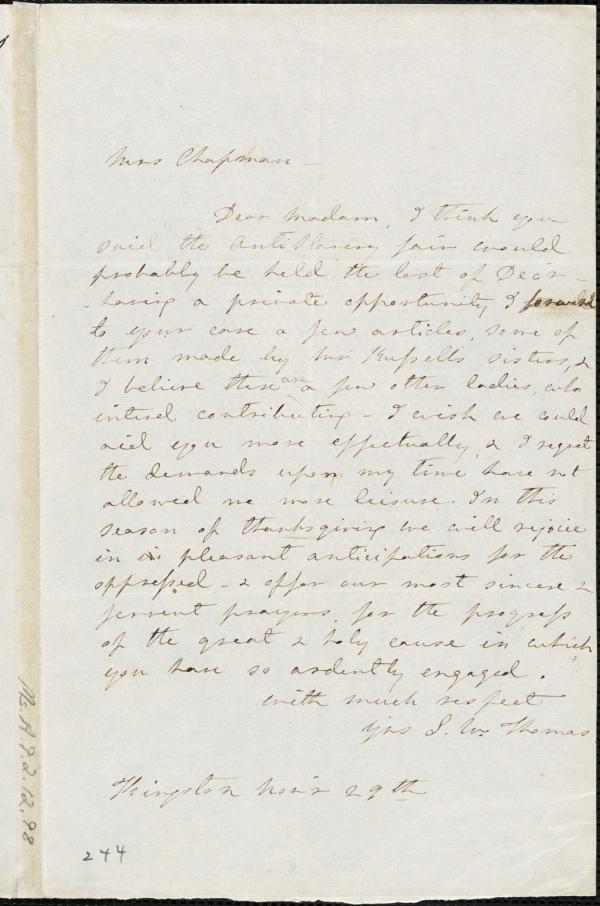 Mrs Chapman -
Dear Madam, I think you
said the AntiSlavery fair would
probably be held the last of Decr -
- having a private opportunity I forward
to your care a few articles, some of
them made by Mr Russells sisters, &
I believe there are a few other ladies, who
intend contributing - I wish we could
aid you more effectually, & I regret
the demands upon my time have not
allowed me more leisure. In this
season of thanksgiving we will rejoice
in in pleasant anticipations for the
oppressed - & offer our most sincere &
fervent prayers, for the progress
of the great & holy cause in which
you have so ardently engaged.
with much respect
Yrs J. W. Thomas
Kingston Nov'r 29th
244
Ms.A.9.2.12.98